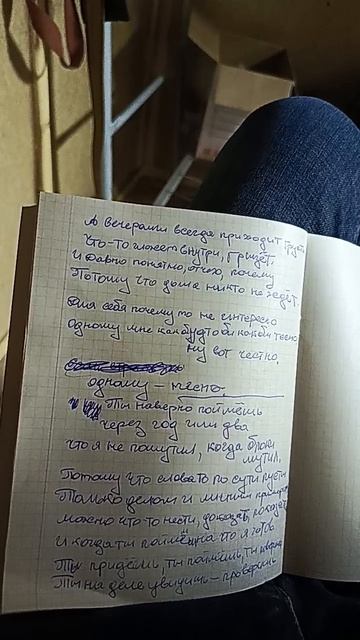 А вечерами всегда приходит грусть
Что-то гложет внутри, грызёт,
И давно понятно, отчего, почему
Потому что дома никто не ждёт.
Для себя почему то не интересно
Одному мне как будто бы как бы тесно
ну вот честно,
одному – тесно.
Ты наверно поймёшь
через год или два
что я не пошутил, когда брови
мутил.
Потому что слова то по сути пусты
Только делом и
можно что-то нести, доказать,
И когда ты поймёшь на что я готов
Ты придёшь, ты поймёшь, ты
Ты на деле увидишь – проверишь